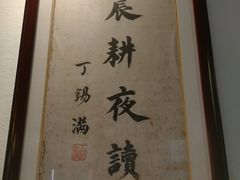 晨耕夜讀
丁錫滿